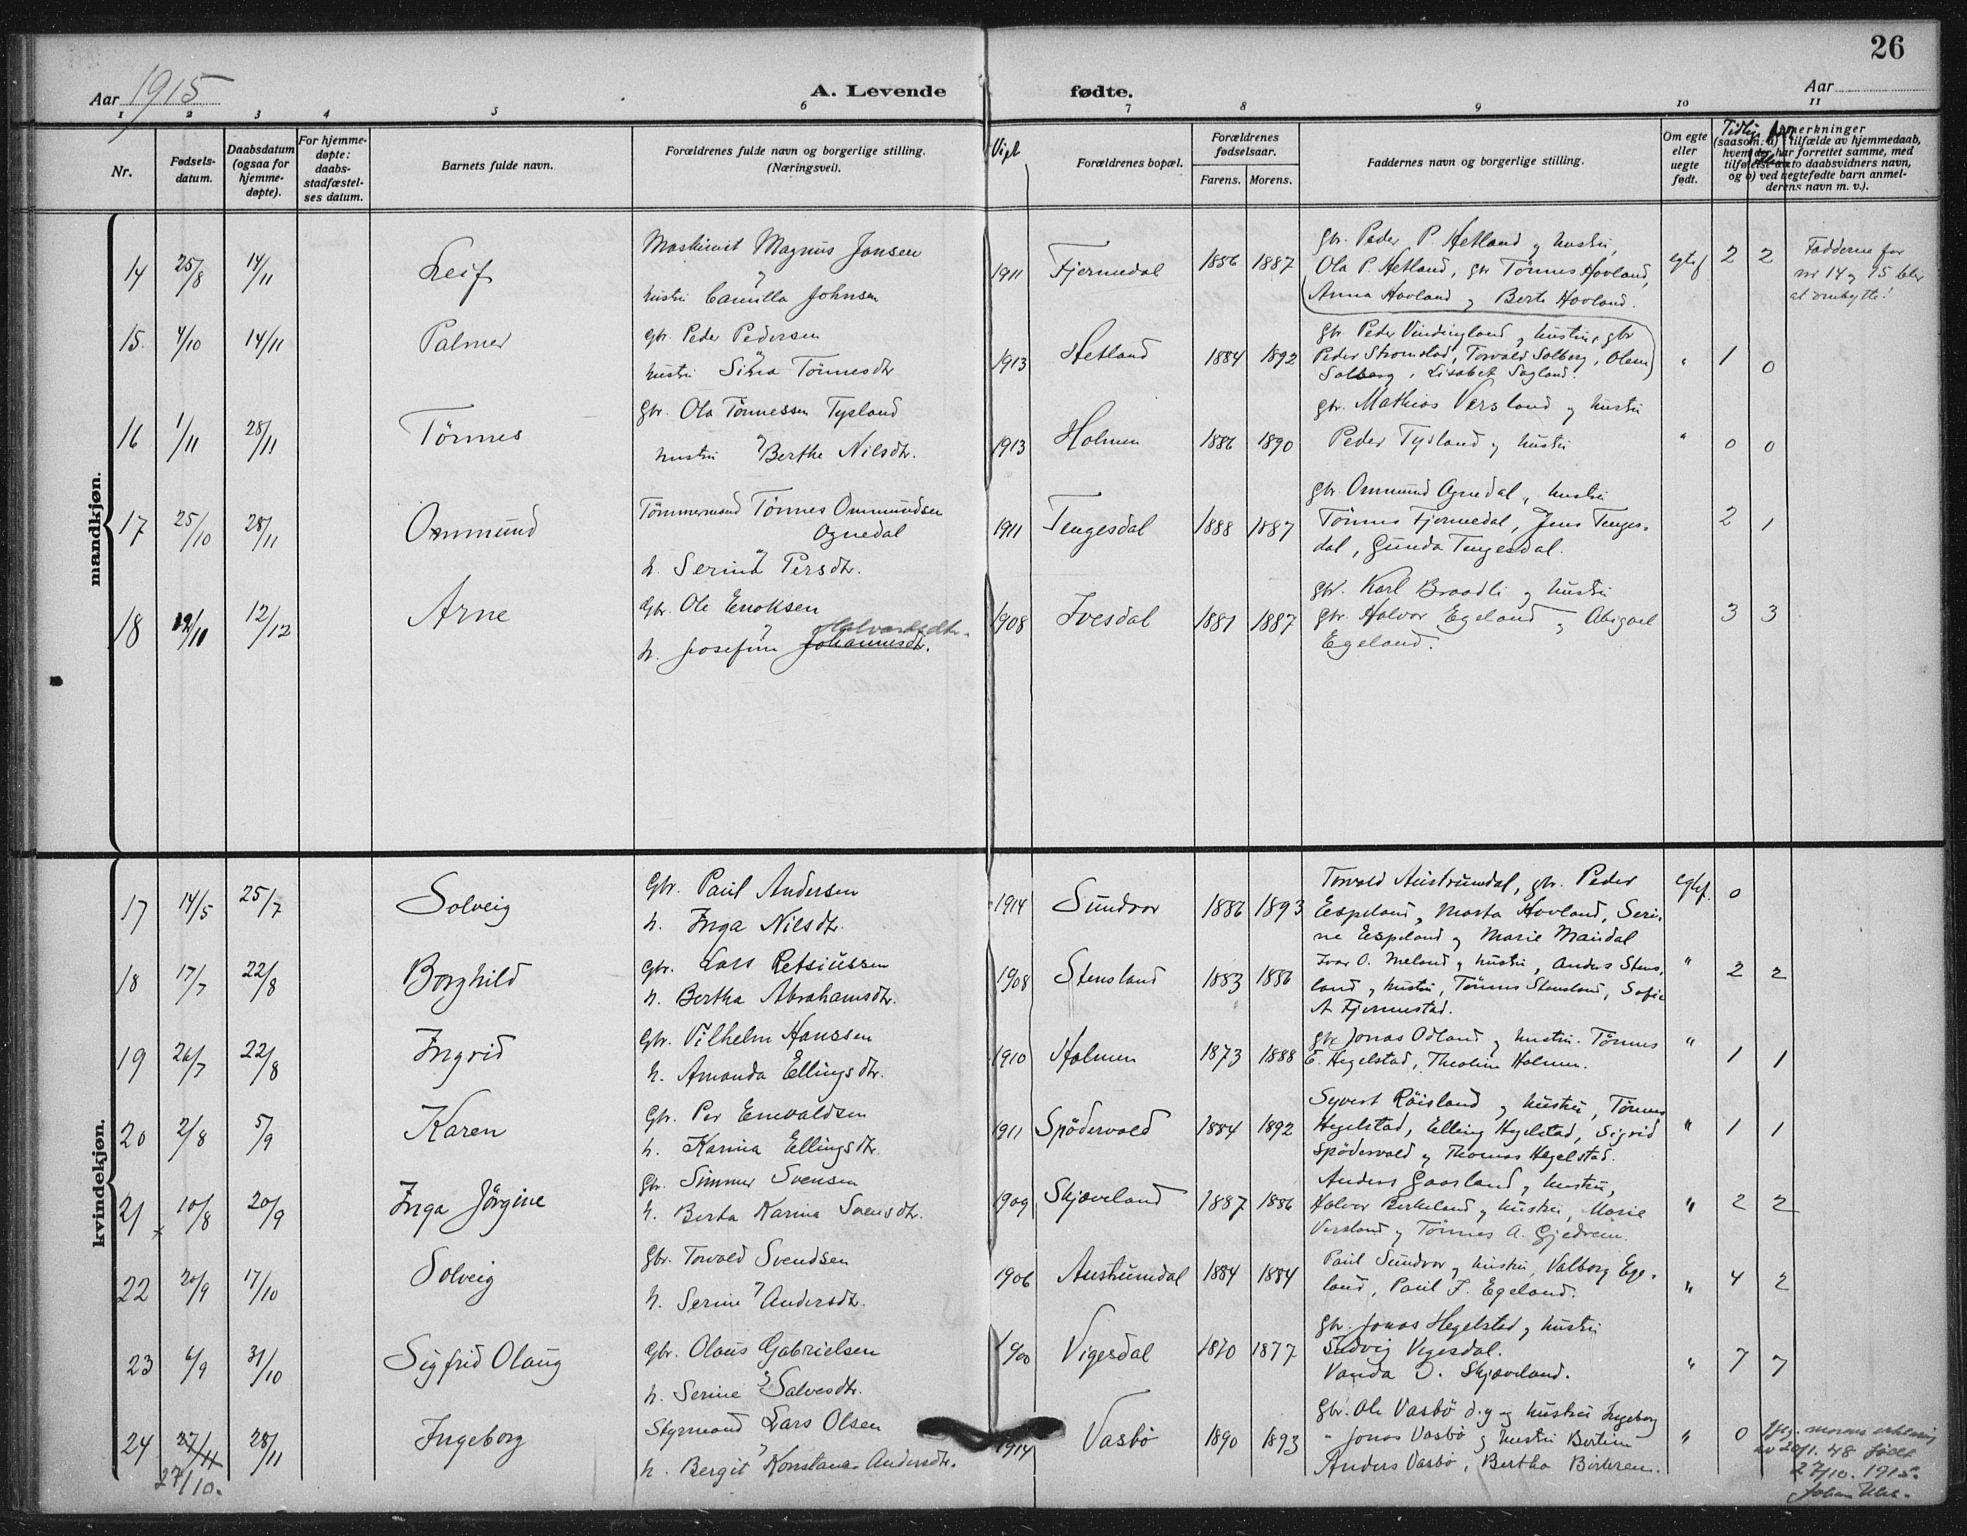 26
Aar 1915
A. Levende fødte.
Aar
1 2 3 4 5 6 7 8 9 10 11
Nr.
Fødsels-
datum.
Daabsdatum
(ogsaa for
hjemme-
døpte).
For hjemme-
døpte:
daabs-
stadfæstel-
ses datum.
Barnets fulde navn.
Forældrenes fulde navn og borgerlige stilling.
(Næringsvei).
Vigt
Forældrenes bopæl.
Forældrenes
fødselsaar.
Farens. Morens.
Faddernes navn og borgerlige stilling.
Om egte
eller
uegte
født.
Anmerkninger
(saasom: a) i tilfælde av hjemmedaab,
hvem der har forrettet samme, med
tilføielse av to daabsvidners navn,
og b) ved uegtefødte barn anmel-
derens navn m. v.).
mandkjøn.
14 25/8 14/11 Leif
Maskinist Magnus Jansen
hustru Camilla Johnsen
1911 Fjermedal 1886 1887
Gbr. Peder P. Hetland og hustru,
Ola P. Hetland, gbr Tønnes Hovland,
Anna Hovland og Berte Hovland.
egtef 2 2
Fadderne for
nr 14 og 15 blev
at ombytte!
15. 4/10 14/11 Palmer
Gbr. Peder Pedersen
hustru Sina Tønnesdtr
1913 Hetland 1884 1892
Gbr. Peder Vindingland og hustru, gbr
Peder Stromstad, Torvald Solberg, Olene
Solberg, Lisabet Sagland.
" 1 0
16 1/11 28/11 Tønnes
Gbr. Ola Tønnessen Tysland
hustru Berthe Nilsdtr.
1913 Holmen 1886 1890
gbr. Mathias Versland og hustru
Peder Tysland og hustru
" 0 0
17 25/10 28/11 Ommund
Tømmermand Tønnes Ommundsen
Ognedal
h. Serina Persdtr.
1911 Tengesdal 1888 1887
Gbr Ommund Ognedal, hustru
Tønnes Fjermedal, Jens Tenges-
dal, Gunda Tengesdal.
2 1
18 12/12 Arne
Gbr. Ole Enoksen
Halvorsdtr.
h. Josefine Johannesdtr.
1908 Ivesdal 1881 1887
Gbr. Karl Braadli og hustru
gbr. Halvor Egeland og Abigael
Egeland.
3 3
kvindekjøn.
17 14/5 25/7 Solveig
Gbr. Paul Andersen
h. Inga Nilsdtr.
1914 Sundvor 1886 1893
Torvald Austrumdal, gbr. Peder
Espeland, Marta Hovland, Seri-
ne Espeland og Marie Mandal
egtef. 0
18 17/7 22/8 Borghild
Gbr. Lars Retsiussen
h. Bertha Abrahamsdtr.
1908 Stensland 1883 1886
Ivar O. Meland og hustru, Anders Stens-
land og hustru, Tønnes Stensland, Sofie
A Fjermestad.
" 2 2
19 26/7 22/8 Ingrid
Gbr. Vilhelm Hanssen
h. Amanda Ellingsdtr.
1910 Holmen 1873 1888
gbr Jonas Odland og hustru. Tønnes
E. Hegelstad, Theoline Holmen.
" 1 1
20 2/8 5/9 Karen
Gbr. Per Enevaldsen
h. Karina Ellingsdtr.
1911 Spødervold 1884 1892
Syvert Røisland og hustru, Tønnes
Hegelstad, Elling Hegelstad, Sigrid
Spødervold og Thomas Hegelstad.
" 1 1
21 10/8 20/9 Inga Jørgine
Gbr. Simmer Svensen
h. Berta Karina Svensdtr.
1909 Skjæveland 1887 1886
Anders Gaasland og hustru,
Halvor Birkeland og hustru, Marie
Versland og Tønnes A. Gjedrem.
" 2 2
22 20/9 17/10 Solveig
Gbr. Torvald Svendsen
h. Serine Andersdtr.
1906 Austrumdal 1884 1884
Paul Sundvor og hustru, Valborg Ege-
land, Paul F. Egeland.
" 4 2
23 6/9 31/10 Sigfrid Olaug
Gbr. Olaus Gabrielsen
h. Serine Salvesdtr.
1900 Vigesdal 1870 1877
Gbr. Jonas Hegelstad og hustru
Ludvig Vigesdal.
Vanda O. Skjæveland.
" 7 7
24 27/11 28/11 Ingeborg
27/10.
Styrmand Lars Olsen
h. Bergit Konstanse Andersdtr.
1914 Vasbø 1890 1893
Gbr. Ole Vasbø d.y. og hustru Ingeborg
" Jonas Vasbø og hustru Bertine
Anders Vasbø, Bertha Birkrem.
" 0
morens erklæring
av 20/1. 48 født
27/10. 1915.